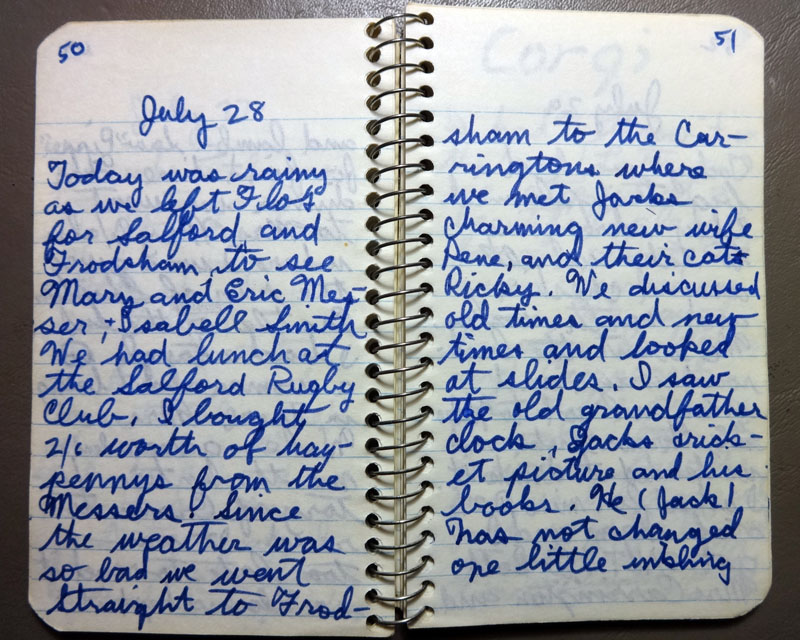 50
July 28
Today was rainy
as we left Flo's
for Salford and
Frodsham to see
Mary and Eric Mes-
ser, + Isabell Smith
We had lunch at
the Salford Rugby
Club. I bought
2/6 worth of hay-
pennys from the
Messers. Since
the weather was
so bad we went
straight to Frod-
51
sham to the Car-
ringtons where
we met Jacks
charming new wife
Rene, and their cat
Ricky. We discussed
old times and new
times and looked
at slides. I saw
the old grandfather
clock, Jacks crick-
et picture and his
books. He (Jack)
has not changed
one little inkling